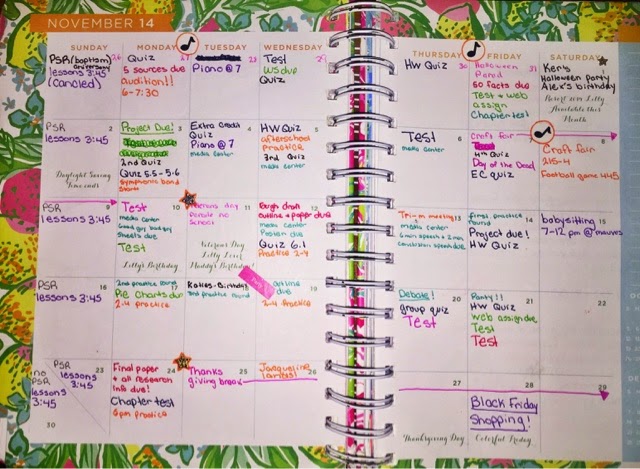 NOVEMBER 14
SUNDAY MONDAY TUESDAY WEDNESDAY THURSDAY FRIDAY SATURDAY
26
PSR (baptism)
lessons 3:45
(cancled)
27
Quiz
5 sources due
audition!!
6-7:30
28
Piano @ 7
29
Test
WS due
Quiz
30
HW Quiz
31
Halloween
Parad
50 facts due
Test + web
assign
Chapter test
Ken's
Halloween party
Alex's birthday
Resort 2014 Lilly
Available this
Month
2
PSR
lessons
3:45
Daylight Saving
Time ends
3
Project Due!
2nd Quiz
Quiz 5.5-5.6
Symphonic band
starts
4
Extra Credit
Quiz
Piano @ 7
media center
5
HW Quiz
afterschool
practice
3rd Quiz
media center
6
Test
media center
Craft fair
HW Quiz
Day of the Dead
EC quiz
8
Craft fair
2:15-4
Football game 4:45
9
PSR
lessons
3:45
10
Test
media center
Good guy bad guy
sheets due
Test
Lilly's Birthday
11
Veterans day
Parade no
School
Veterans Day
Lilly Lover
Maddy's Birthday
12
Rough draft
outline + paper due
media center
Poster due
Quiz 6.1
Practice 2-4
13
Tri-m meeting
media center
6 min speech + 2 min
Constitution speech due
14
first practice
round
Project due!
HW Quiz
15
babysitting
7-12 pm @ mauves
16
PSR
lessons
3:45
17
2nd practice round
Pie Charts due
2-4 practice
Katies Birthday!
3rd practice round
19
outline
due
2-4 practice
20
Debate!
group quiz
Test
21
Party!!
HW Quiz
web assign due
Test
Test
22
23
PSR
lessons
3:45
no
PSR
lessons
3:45
30
24
Final paper
+ all research
info due!
Chapter test
6pm practice
25
Thanks
giving break
26
Jacqueline
27
Thanksgiving Day
28
Black Friday
Shopping!
Colorful Friday
29